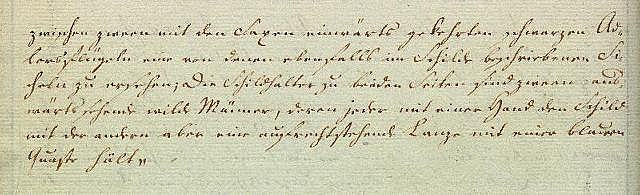 zwischen zween mit den Saxen einwärts gekehrten schwarzen Ad-
lersflügeln eine von denen ebenfalls im Schilde beschriebenen Si-
cheln zu ersehen; Die Schildhalter zu beeden Seiten sind zween aus-
wärtssehende wilde Männer, deren jeder mit einer Hand den Schild
mit der anderen aber eine aufrechtstehende Lanze mit einer blauen
Quaste hält,